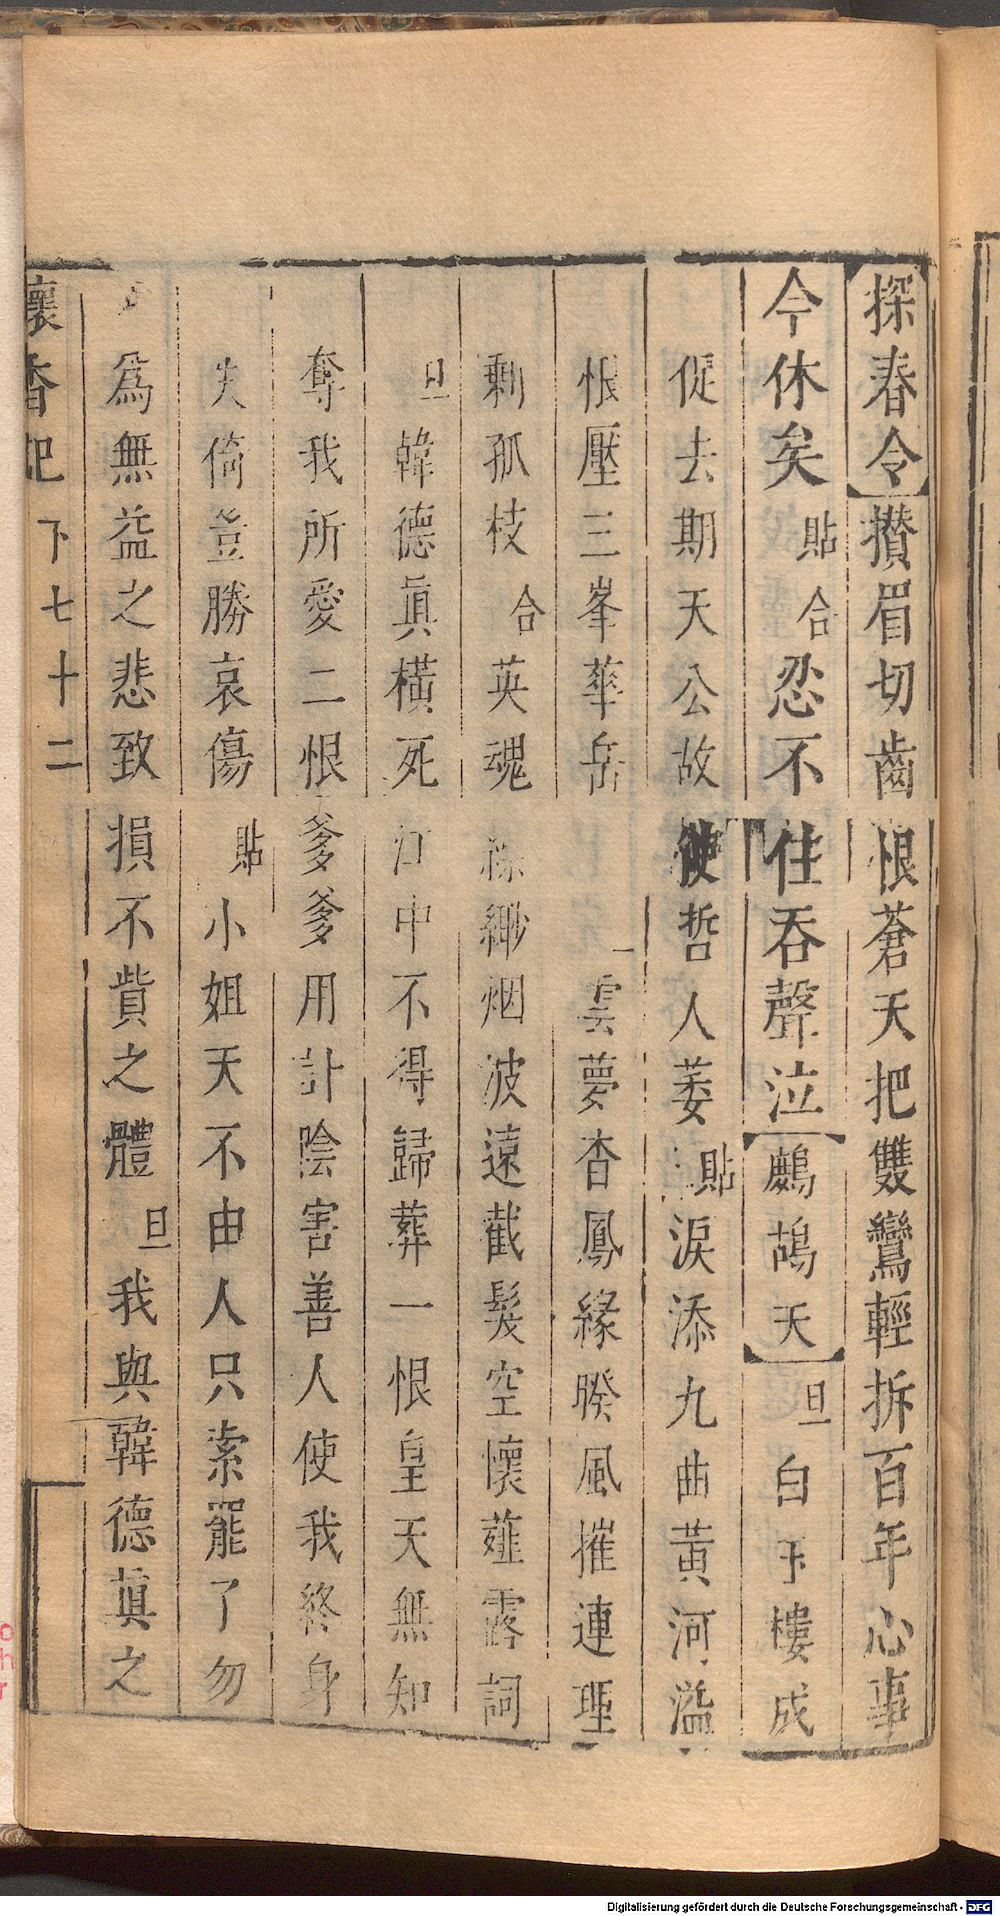 探春令攢眉切齒恨蒼天把雙鸞輕拆百年心事
今休矣貼合忍不住吞聲泣鷓鴣天旦白玉樓成
促去期天公故使哲人萎貼淚添九曲黄河溢
恨壓三峯華岳雲夢杳鳳緣暌風摧連理
剩孤枝合英魂緲烟波遠截髮空懷薤露詞
旦韓德眞橫死江中不得歸葬一恨皇天無知
奪我所愛二恨爹爹用計陰害善人使我終身
失倚豈勝哀傷貼小姐天不由人只索罷了勿
為無益之悲致損不貲之體旦我與韓德眞之
懷香記下七十二
Digitalisierung gefördert durch die Deutsche Forschungsgemeinschaft - DFG